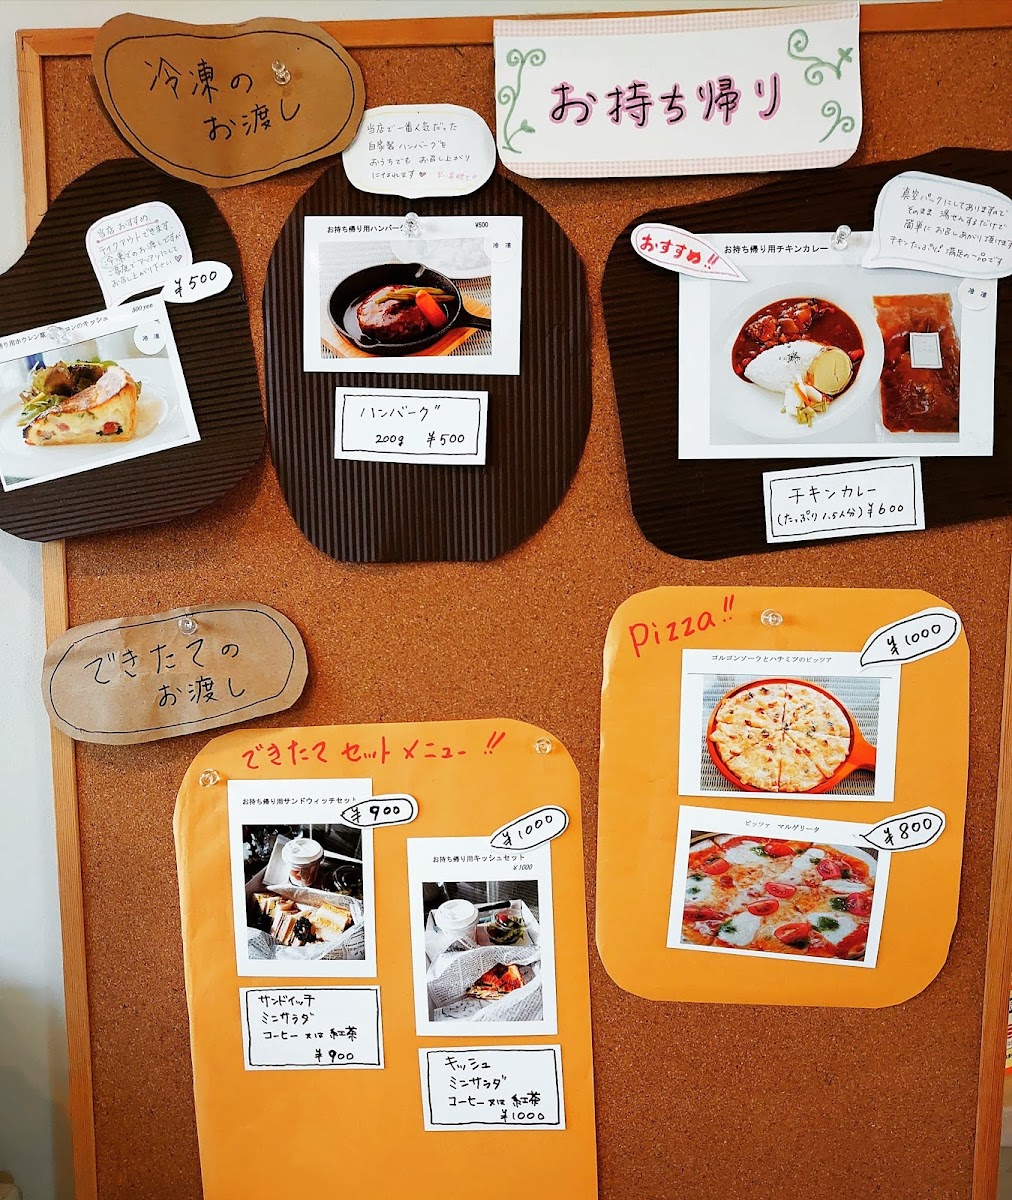 冷凍の
お渡し
お持ち帰り
当店で一番人気だった
自家製ハンバーグを
おうちでも お召し上がり
になれます♡
お持ち帰り用ハンバーグ
¥500
冷 凍
ハンバーグ
200g ¥500
当店おすすめ
テイクアウトできます
冷凍でのお渡しですが
ご家庭でアツアツにして
お召し上がり下さい♡
¥500
り用ホウレン草
コンのキッシュ
500 yen
冷 凍
おすすめ!!
お持ち帰り用チキンカレー
真空パックにしてありますので
そのまま 湯せんするだけで
簡単に お召しあがり頂けます
チキンたっぷり 満足の一品です
冷 凍
チキンカレー
(たっぷり 1.5人分) ¥600
できたての
お渡し
できたて セットメニュー!!
お持ち帰り用サンドウィッチセット
¥900
サンドイッチ
ミニサラダ
コーヒー 又は 紅茶
¥900
¥1000
お持ち帰り用キッシュセット
¥1000
キッシュ
ミニサラダ
コーヒー 又は 紅茶
¥1000
Pizza!!
¥1000
ゴルゴンゾーラとハチミツのピッツア
ピッツァ マルゲリータ
¥800